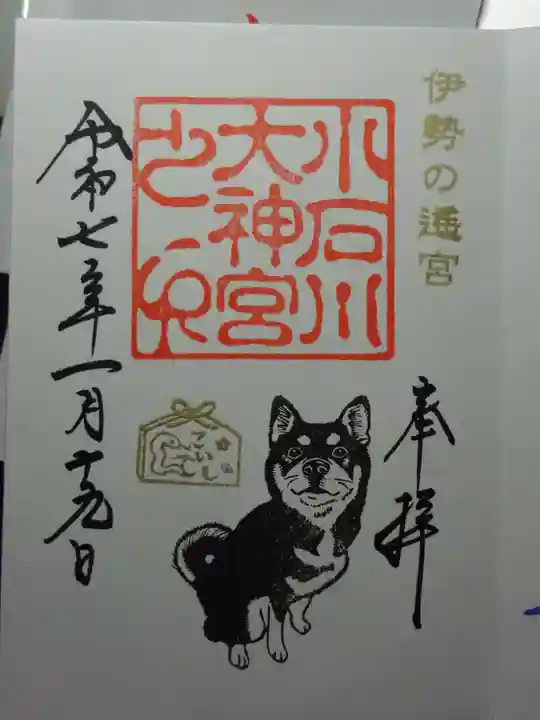 伊勢の遥宮
奉拝
小石川
大神宮
之印
こいし
令和七年一月十九日